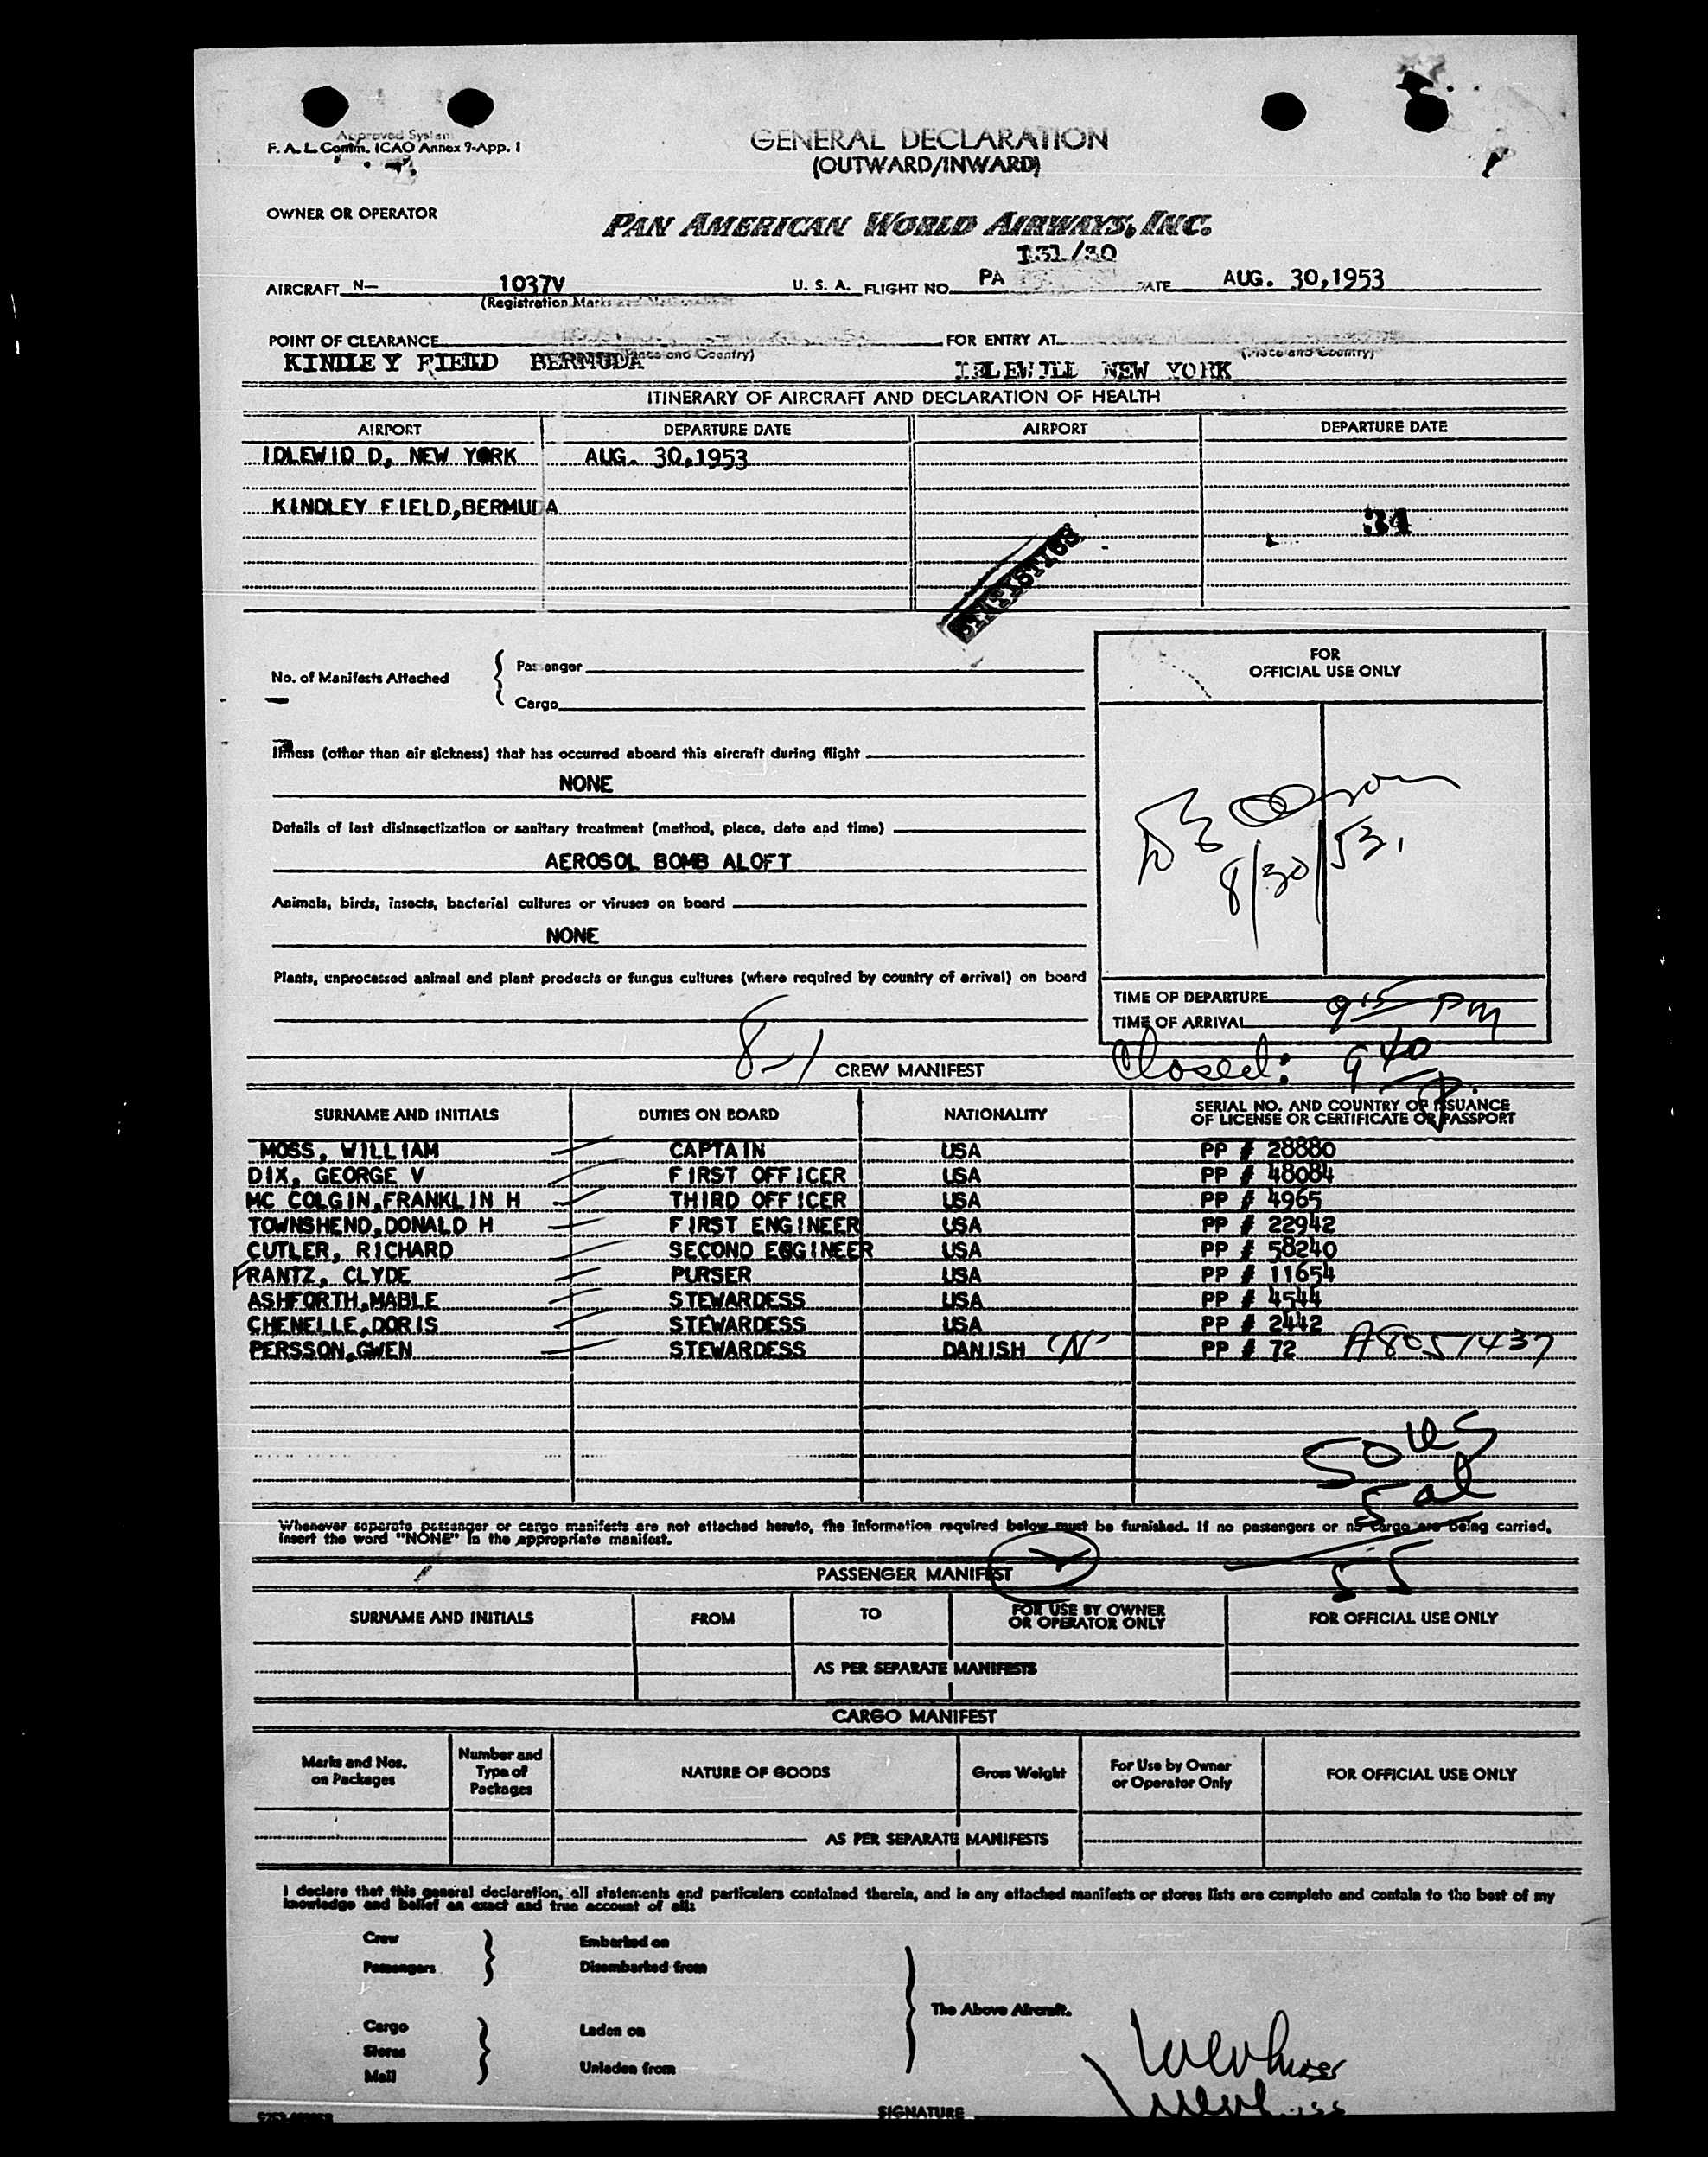 Approved System
F. A. L. Comm. ICAO Annex 9-App. 1
GENERAL DECLARATION
(OUTWARD/INWARD)
OWNER OR OPERATOR
PAN AMERICAN WORLD AIRWAYS, INC.
131/30
AIRCRAFT N- 1037V U. S. A. FLIGHT NO. PA DATE AUG. 30,1953
(Registration Marks and
POINT OF CLEARANCE FOR ENTRY AT
(Place and Country) (Place and Country)
KINDLEY FIELD BERMUDA IDLEWILD NEW YORK
ITINERARY OF AIRCRAFT AND DECLARATION OF HEALTH
AIRPORT DEPARTURE DATE AIRPORT DEPARTURE DATE
IDLEWIO D, NEW YORK AUG. 30,1953
KINDLEY FIELD,BERMUDA
34
STATISTICS
FOR
OFFICIAL USE ONLY
No. of Manifests Attached { Passenger
Cargo
Illness (other than air sickness) that has occurred aboard this aircraft during flight
NONE
Details of last disinsectization or sanitary treatment (method, place, date and time)
AEROSOL BOMB ALOFT
8/30/53
Animals, birds, insects, bacterial cultures or viruses on board
NONE
Plants, unprocessed animal and plant products or fungus cultures (where required by country of arrival) on board
TIME OF DEPARTURE
TIME OF ARRIVAL 9 15 PM
8-1 CREW MANIFEST Closed: 9 40 P.
SURNAME AND INITIALS DUTIES ON BOARD NATIONALITY SERIAL NO. AND COUNTRY OF ISSUANCE
OF LICENSE OR CERTIFICATE OR PASSPORT
MOSS, WILLIAM CAPTAIN USA PP # 28880
DIX, GEORGE V FIRST OFFICER USA PP # 48084
MC COLGIN,FRANKLIN H THIRD OFFICER USA PP # 4965
TOWNSHEND,DONALD H FIRST ENGINEER USA PP # 22942
CUTLER, RICHARD SECOND EGGINEER USA PP # 58240
FRANTZ, CLYDE PURSER USA PP # 11654
ASHFORTH,MABLE STEWARDESS USA PP # 4544
CHENELLE,DORIS STEWARDESS USA PP # 2442
PERSSON,GWEN STEWARDESS DANISH "N" PP # 72 A8051437
50 US
5 al
55
Whenever separate passenger or cargo manifests are not attached hereto, the information required below must be furnished. If no passengers or no cargo are being carried,
insert the word "NONE" in the appropriate manifest.
PASSENGER MANIFEST
SURNAME AND INITIALS FROM TO FOR USE BY OWNER
OR OPERATOR ONLY FOR OFFICIAL USE ONLY
AS PER SEPARATE MANIFESTS
CARGO MANIFEST
Marks and Nos.
on Packages Number and
Type of
Packages NATURE OF GOODS Gross Weight For Use by Owner
or Operator Only FOR OFFICIAL USE ONLY
AS PER SEPARATE MANIFESTS
I declare that this general declaration, all statements and particulars contained therein, and in any attached manifests or stores lists are complete and contain to the best of my
knowledge and belief an exact and true account of all:
Crew Embarked on
Passengers Disembarked from
The Above Aircraft.
Cargo Laden on
Stores
Mail Unladen from
SIGNATURE